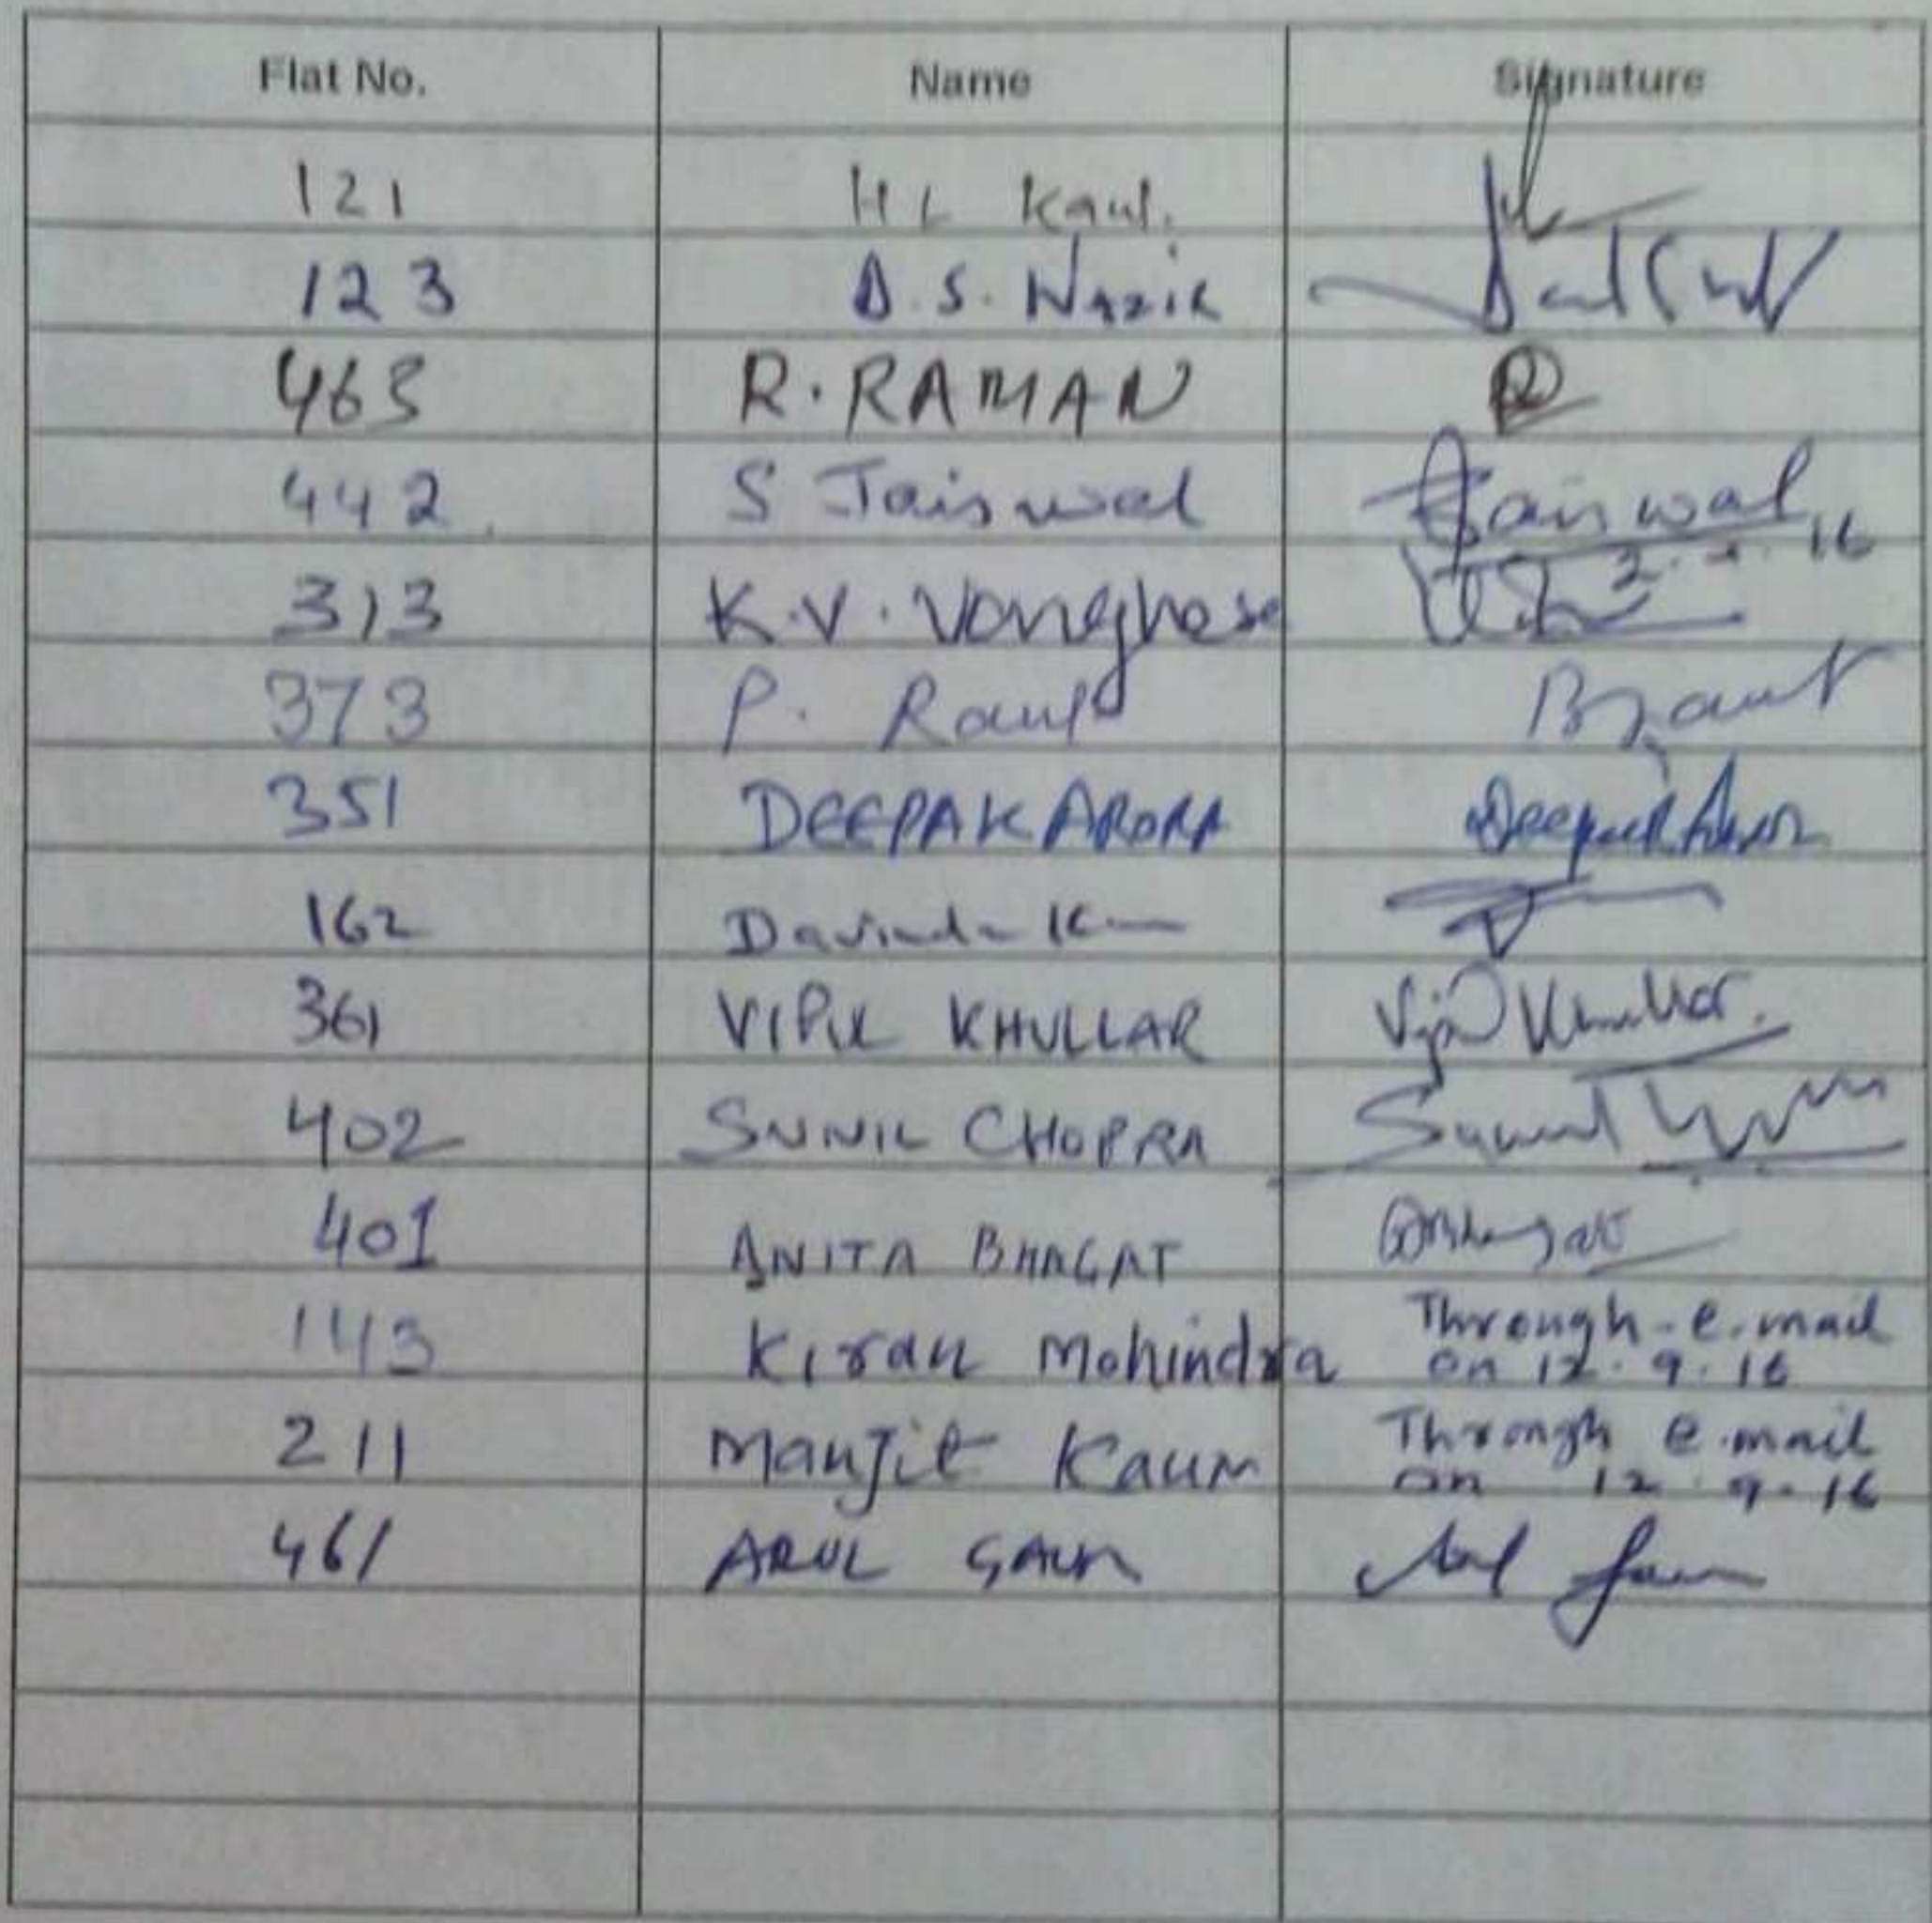 Flat No. Name Signature
121 H L Kaul.
123 D.S. Nazir
463 R. RAMAN
442 S Jaiswal Jaiswal
313 K.V. Varughese
373 P.
351 DEEPAK ARORA Deepak Arora
162
361 VIPUL KHULLAR Vipul Khullar.
402 SUNIL CHOPRA Sunil
401 ANITA BHAGAT ABhagat
143 Kiran Mohindra Through e.mail
on 12.9.16
211 Manjit Kaur Through e.mail
on 12.9.16
461 ARUL GAUR